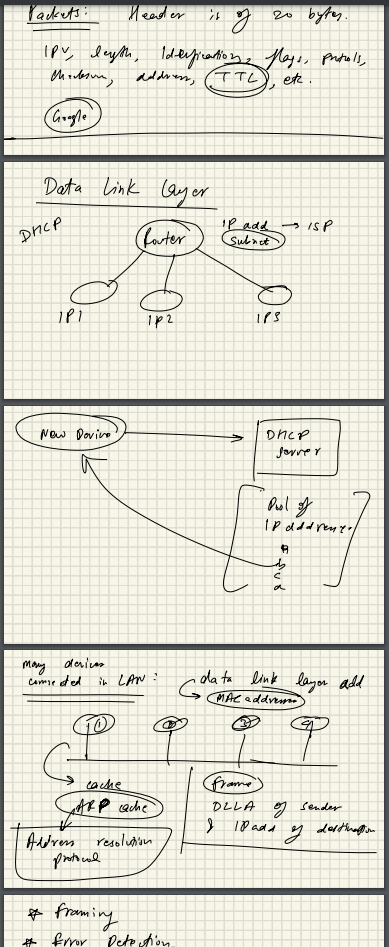 Packets: Header is of 20 bytes.
IPV, length, Identification, flags, protocols,
checksum, address, TTL, etc.
Google
Data Link Layer
DHCP
Router
IP add → ISP
Subnet
IP1
IP2
IP3
New Device
DHCP
server
Pool of
IP addresses
a
b
c
d
many devices
connected in LAN:
data link layer add
MAC addresses
1
2
3
4
cache
ARP cache
Address resolution
protocol
frame
DLLA of sender
& IP add of destination
* Framing
* Error Detection